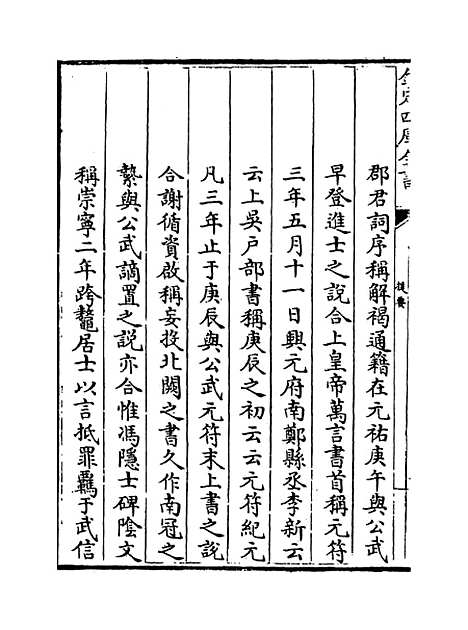 欽定四庫全書
提要
郡君詞序稱解褐通籍在元祐庚午與公武
早登進士之說合上皇帝萬言書首稱元符
三年五月十一日興元府南鄭縣丞李新云
云上吳戶部書稱庚辰之初云云元符紀元
凡三年止于庚辰與公武元符末上書之說
合謝循資啟稱妄投北闕之書久作南冠之
縶與公武謫置之說亦合惟馮隱士碑陰文
稱崇寧二年跨鼇居士以言抵罪羈于武信